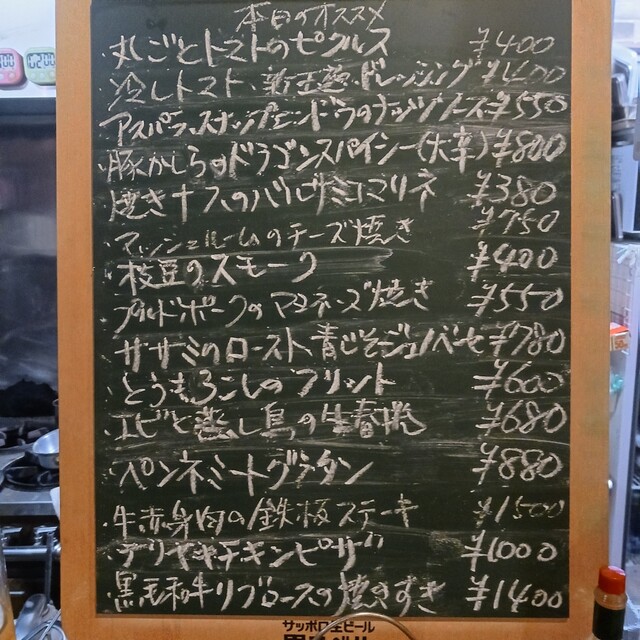 本日のオススメ
丸ごとトマトのピクルス ¥400
冷しトマト 新玉葱ドレッシング ¥400
アスパラ、スナップエンドウのナッツソース ¥550
豚かしらのドラゴンスパイシー(大辛) ¥800
焼きナスのバルサミコマリネ ¥380
マッシュルームのチーズ焼き ¥750
枝豆のスモーク ¥400
プルドポークのマヨネーズ焼き ¥550
ササミのロースト青じそジェノベーゼ ¥780
とうもろこしのフリット ¥600
エビと蒸し鳥の生春巻 ¥680
ペンネミートグラタン ¥880
牛赤身肉の鉄板ステーキ ¥1500
テリヤキチキンピザ ¥1000
黒毛和牛リブロースの焼きすき ¥1400
サッポロ生ビール